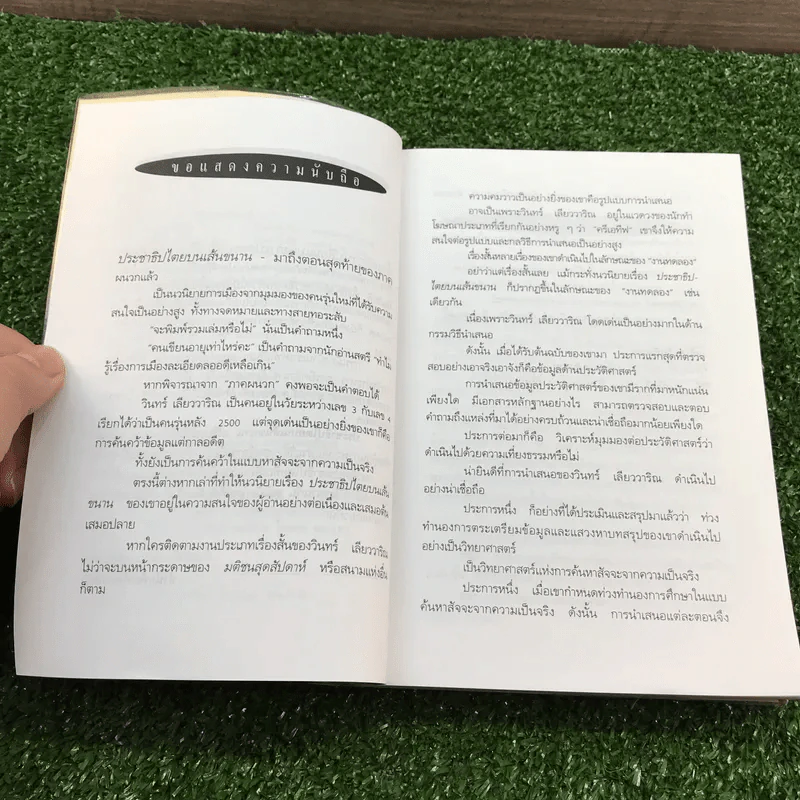 ขอแสดงความนับถือ
ประชาธิปไตยบนเส้นขนาน - มาถึงตอนสุดท้ายของภาค
ผนวกแล้ว
เป็นนวนิยายการเมืองจากมุมมองของคนรุ่นใหม่ที่ได้รับความ
สนใจเป็นอย่างสูง ทั้งทางจดหมายและทางสายทอระศัป
"จะพิมพ์รวมเล่มหรือไม่" นั่นเป็นคำถามหนึ่ง
"คนเขียนอายุเท่าไหร่คะ" เป็นคำถามจากนักอ่านสตรี "ทำไม
รู้เรื่องการเมืองละเอียดลออดีเหลือเกิน"
หากพิจารณาจาก "ภาคผนวก" คงพอจะเป็นคำตอบได้
วินทร์ เลียววาริณ เป็นคนอยู่ในวัยระหว่างเลข 3 กับเลข 4
เรียกได้ว่าเป็นคนรุ่นหลัง 2500 แต่จุดเด่นเป็นอย่างยิ่งของเขาก็คือ
การค้นคว้าข้อมูลแต่กาลอดีต
ทั้งยังเป็นการค้นคว้าในแบบหาสัจจะจากความเป็นจริง
ตรงนี้ต่างหากเล่าที่ทำให้นวนิยายเรื่อง ประชาธิปไตยบนเส้น
ขนาน ของเขาอยู่ในความสนใจของผู้อ่านอย่างต่อเนื่องและเสมอต้น
เสมอปลาย
หากใครติดตามงานประเภทเรื่องสั้นของวินทร์ เลียววาริณ
ไม่ว่าจะบนหน้ากระดาษของ มติชนสุดสัปดาห์ หรือสนามแห่งอื่น
ก็ตาม
ความคมวาวเป็นอย่างยิ่งของเขาคือรูปแบบการนำเสนอ
อาจเป็นเพราะวินทร์ เลียววาริณ อยู่ในแวดวงของนักทำ
โฆษณาประเภทที่เรียกกันอย่างหรู ๆ ว่า "ครีเอทีฟ" เขาจึงให้ความ
สนใจต่อรูปแบบและกลวิธีการนำเสนอเป็นอย่างสูง
เรื่องสั้นหลายเรื่องของเขาดำเนินไปในลักษณะของ "งานทดลอง"
อย่าว่าแต่เรื่องสั้นเลย แม้กระทั่งนวนิยายเรื่อง ประชาธิป-
ไตยบนเส้นขนาน ก็ปรากฏขึ้นในลักษณะของ "งานทดลอง" เช่น
เดียวกัน
เนื่องเพราะวินทร์ เลียววาริณ โดดเด่นเป็นอย่างมากในด้าน
กรรมวิธีนำเสนอ
ดังนั้น เมื่อได้รับต้นฉบับของเขามา ประการแรกสุดที่ตรวจ
สอบอย่างเอาจริงเอาจังก็คือข้อมูลด้านประวัติศาสตร์
การนำเสนอข้อมูลประวัติศาสตร์ของเขามีรากที่มาหนักแน่น
เพียงใด มีเอกสารหลักฐานอย่างไร สามารถตรวจสอบและตอบ
คำถามถึงแหล่งที่มาได้อย่างครบถ้วนและน่าเชื่อถือมากน้อยเพียงใด
ประการต่อมาก็คือ วิเคราะห์มุมมองต่อประวัติศาสตร์ว่า
ดำเนินไปด้วยความเที่ยงธรรมหรือไม่
น่ายินดีที่การนำเสนอของวินทร์ เลียววาริณ ดำเนินไป
อย่างน่าเชื่อถือ
ประการหนึ่ง ก็อย่างที่ได้ประเมินและสรุปมาแล้วว่า ท่วง
ทำนองการตระเตรียมข้อมูลและแสวงหาบทสรุปของเขาดำเนินไป
อย่างเป็นวิทยาศาสตร์
เป็นวิทยาศาสตร์แห่งการค้นหาสัจจะจากความเป็นจริง
ประการหนึ่ง เมื่อเขากำหนดท่วงทำนองการศึกษาในแบบ
ค้นหาสัจจะจากความเป็นจริง ดังนั้น การนำเสนอแต่ละตอนจึง